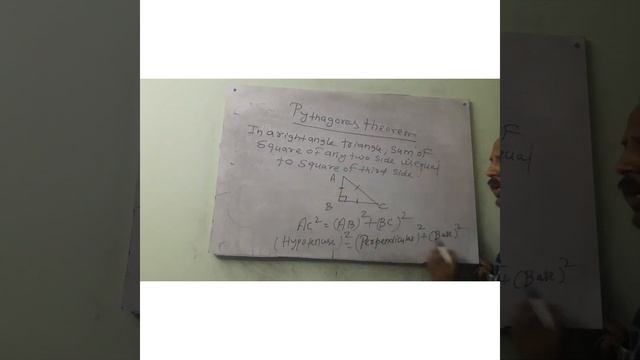 Pythagoras theorem
In a rightangle triangle, sum of
square of any two side is equal
to square of third side.
A
B
C
AC² = (AB)² + (BC)²
(Hypotenuse)² = (Perpendicular)² + (Base)²
of
equal
+ (Base)²